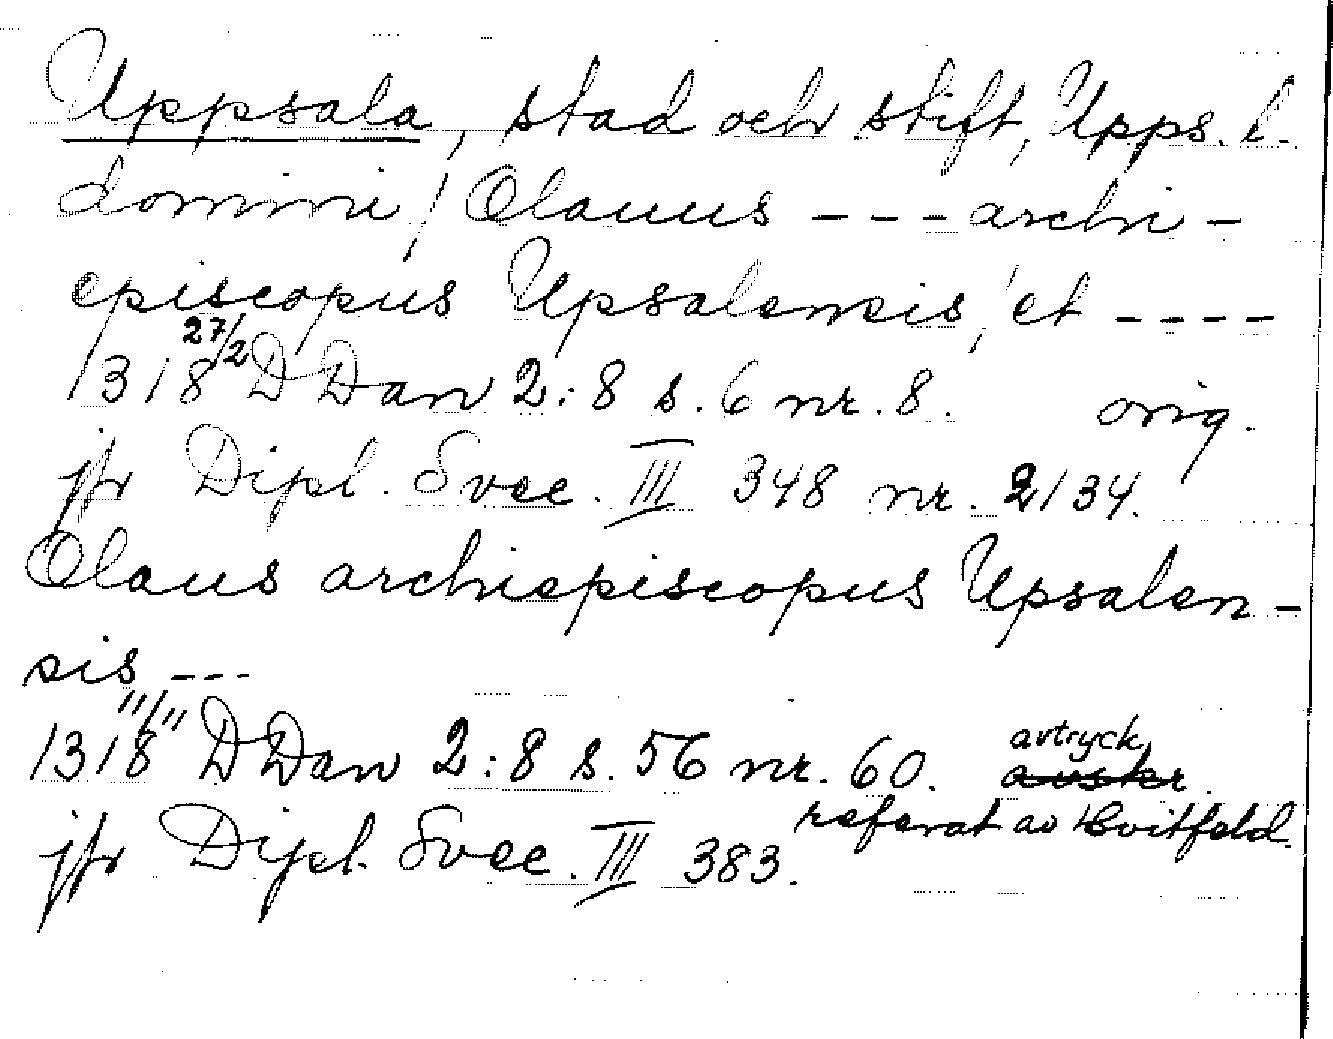 Uppsala, stad och stift, Upps. l.
domini / Olauus --- archi-
episcopus Upsalensis, et ----
1318 27/2 D Dan 2:8 s. 6 nr. 8. orig.
jfr Dipl. Svec. III 348 nr. 2134.
Olaus archiepiscopus Upsalen-
sis ---
1318 11/11 D Dan 2:8 s. 56 nr. 60. avtryck, avskr.
referat av Hvitfeld.
jfr Dipl. Svec. III 383.